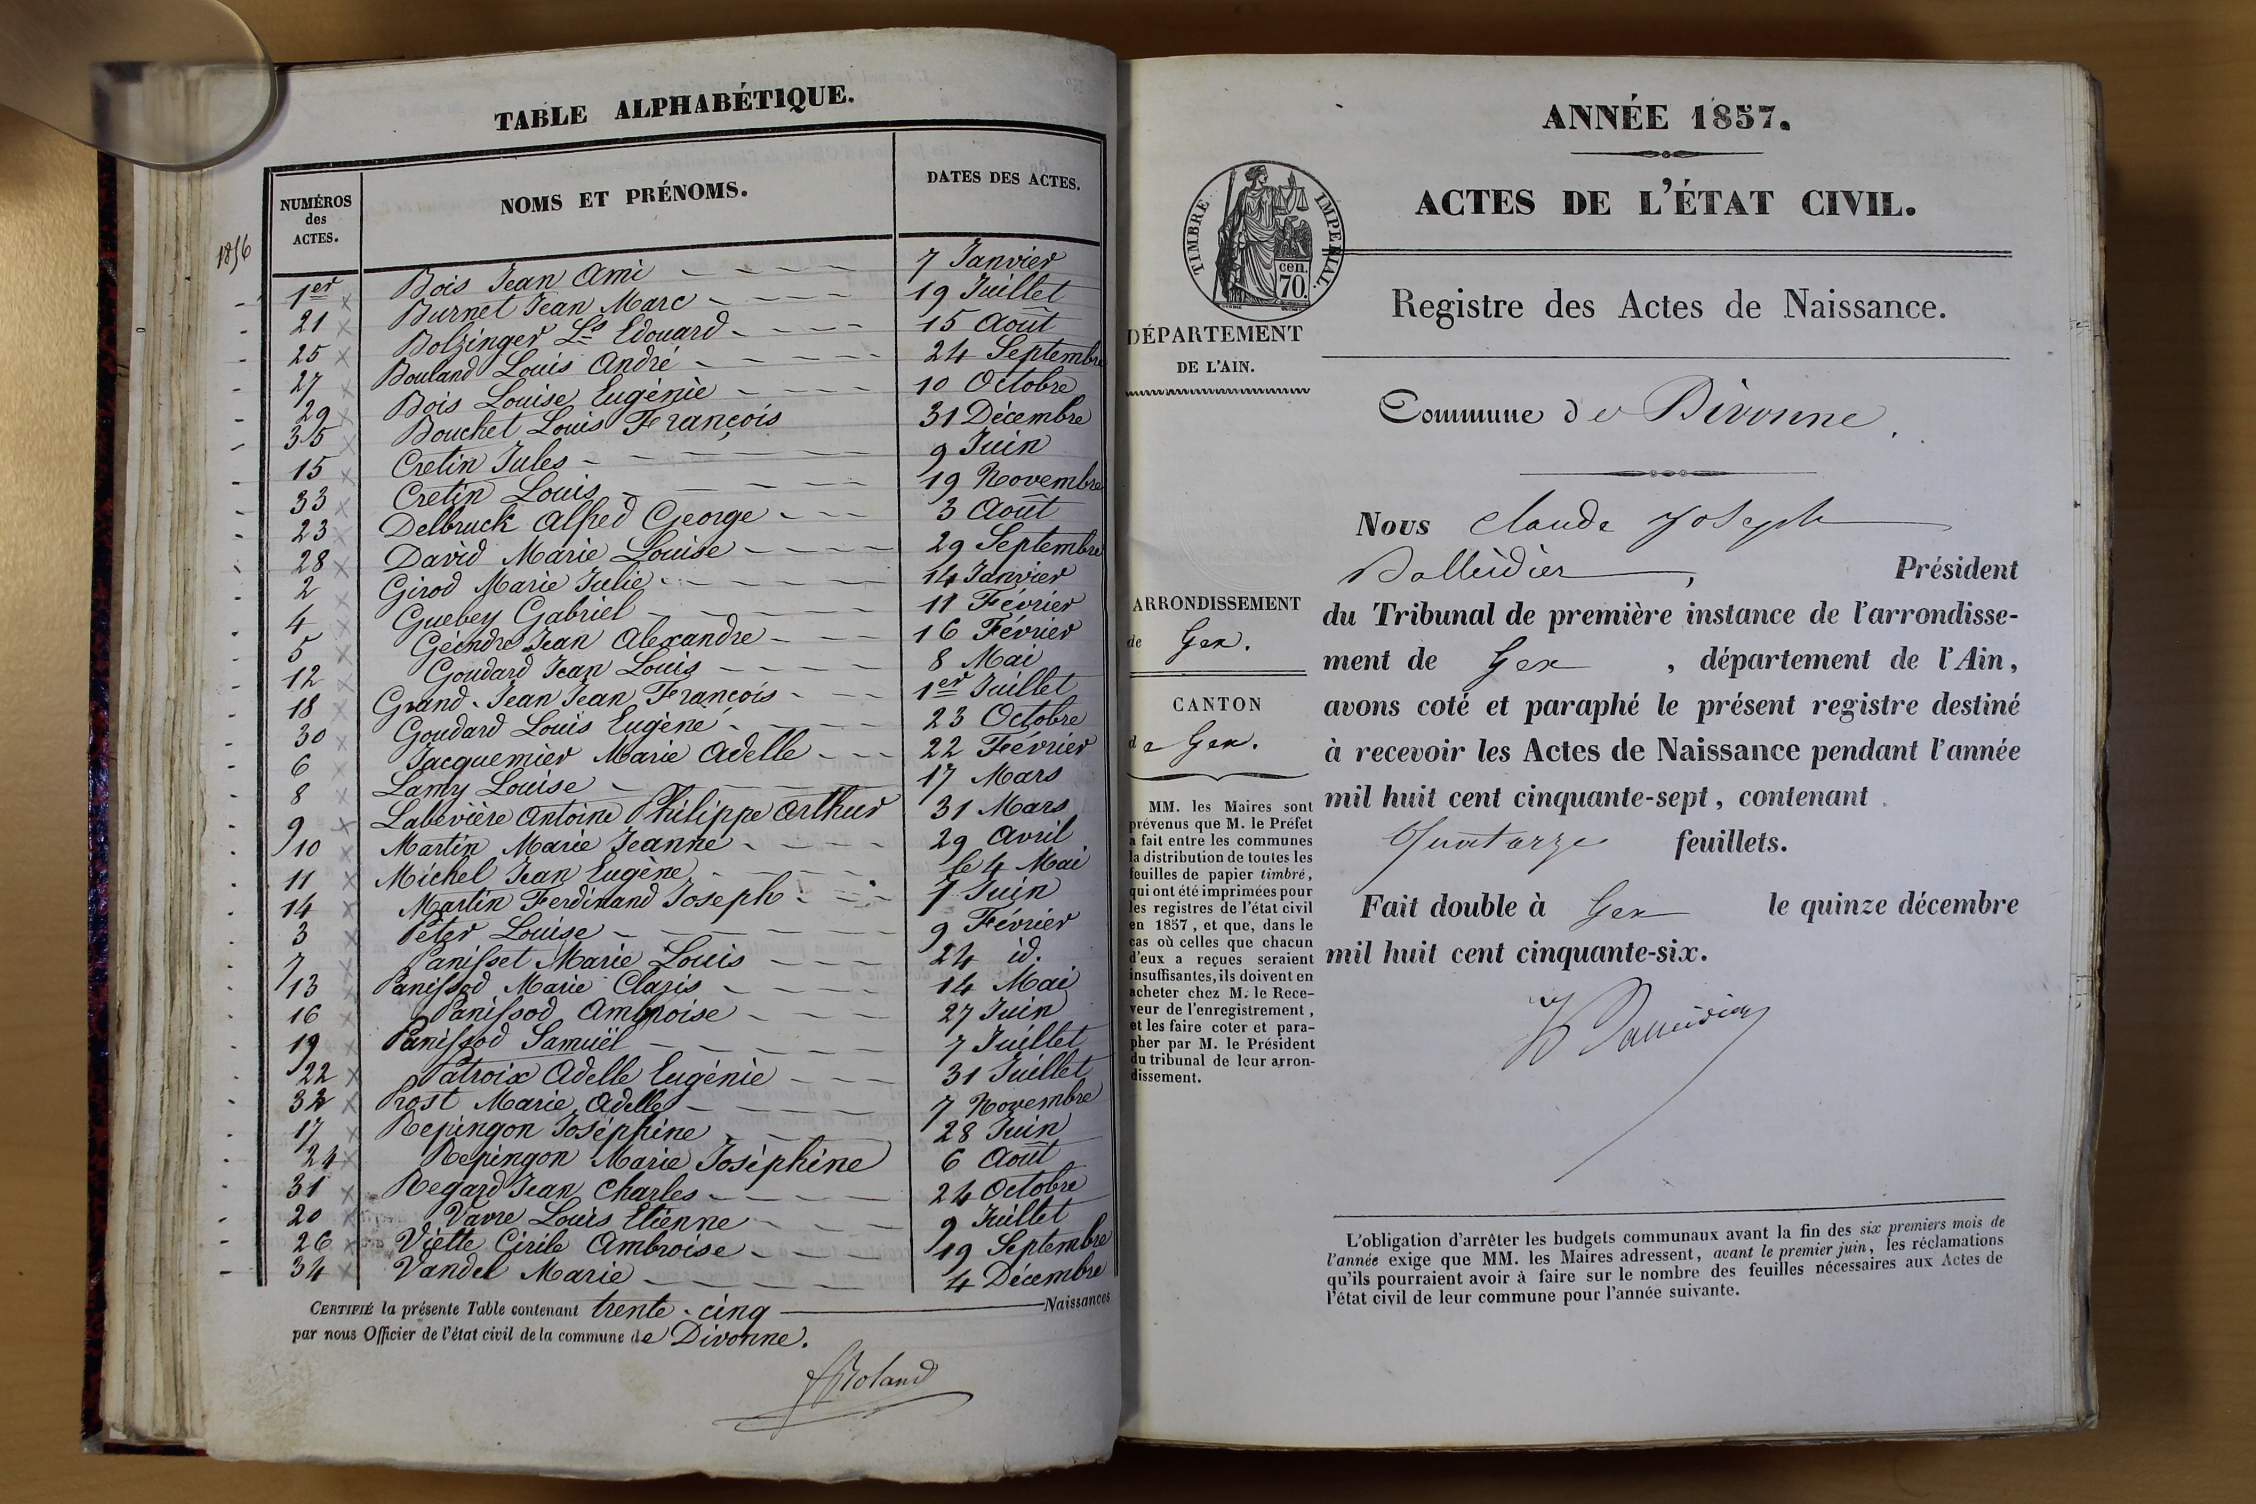 TABLE ALPHABÉTIQUE.
NUMÉROS des ACTES. NOMS ET PRÉNOMS. DATES DES ACTES.
1856
1er Bois Jean Ami 7 Janvier
21 Burnet Jean Marc 19 Juillet
25 Bolzinger Ls Edouard 15 Août
27 Bouland Louis André 24 Septembre
29 Bois Louise Eugénie 10 Octobre
35 Bouchet Louis François 31 Décembre
15 Cretin Jules 9 Juin
33 Cretin Louis 19 Novembre
23 Delbruck Alfred George 3 Août
28 David Marie Louise 29 Septembre
2 Girod Marie Julie 14 Janvier
4 Guebey Gabriel 11 Février
5 Géindre Jean Alexandre 16 Février
12 Goudard Jean Louis 8 Mai
18 Grand-Jean Jean François 1er Juillet
30 Goudard Louis Eugène 23 Octobre
6 Jacquemier Marie Adelle 22 Février
8 Lamy Louise 17 Mars
9 Labévière Antoine Philippe Arthur 31 Mars
10 Martin Marie Jeanne 29 Avril
11 Michel Jean Eugène le 4 Mai
14 Martin Ferdinand Joseph 7 Juin
3 Péter Louise 9 Février
7 Panisset Marie Louis 24 id.
13 Panissod Marie Claris 14 Mai
16 Panissod Ambroise 27 Juin
19 Panissod Samuël 7 Juillet
22 Patroix Adelle Eugénie 31 Juillet
32 Prost Marie Adelle 7 Novembre
17 Repingon Joséphine 28 Juin
24 Repingon Marie Joséphine 6 Août
31 Regard Jean Charles 24 Octobre
20 Vavre Louis Etienne 9 Juillet
26 Viette Cirile Ambroise 19 Septembre
34 Vandel Marie 4 Décembre
CERTIFIÉ la présente Table contenant trente-cinq Naissances
par nous Officier de l'état civil de la commune de Divonne.
Roland
ANNÉE 1857.
ACTES DE L'ÉTAT CIVIL.
TIMBRE IMPERIAL.
cen.
70.
Registre des Actes de Naissance.
DÉPARTEMENT
DE L'AIN.
Commune de Divonne
ARRONDISSEMENT
de Gex.
CANTON
de Gex.
MM. les Maires sont
prévenus que M. le Préfet
a fait entre les communes
la distribution de toutes les
feuilles de papier timbré,
qui ont été imprimées pour
les registres de l'état civil
en 1857, et que, dans le
cas où celles que chacun
d'eux a reçues seraient
insuffisantes, ils doivent en
acheter chez M. le Rece-
veur de l'enregistrement,
et les faire coter et para-
pher par M. le Président
du tribunal de leur arron-
dissement.
Nous Claude Joseph
Balleidier, Président
du Tribunal de première instance de l'arrondisse-
ment de Gex, département de l'Ain,
avons coté et paraphé le présent registre destiné
à recevoir les Actes de Naissance pendant l'année
mil huit cent cinquante-sept, contenant
Quatorze feuillets.
Fait double à Gex le quinze décembre
mil huit cent cinquante-six.
L'obligation d'arrêter les budgets communaux avant la fin des six premiers mois de
l'année exige que MM. les Maires adressent, avant le premier juin, les réclamations
qu'ils pourraient avoir à faire sur le nombre des feuilles nécessaires aux Actes de
l'état civil de leur commune pour l'année suivante.